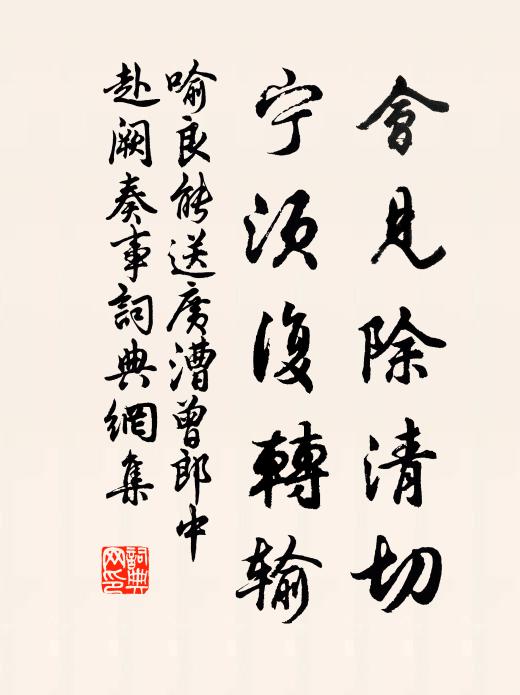 會見除清切
宁須復轉输
喻良能送廣漕曾郎中
赴阙奏事詞典網集
詞典网印